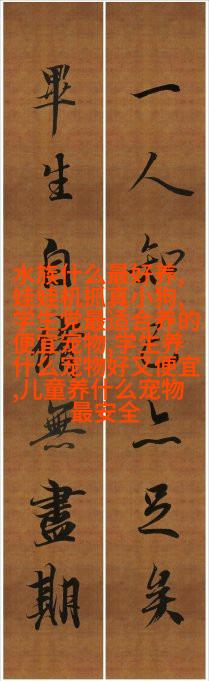 一人知己亦足矣
畢生自修無盡期
水族什么最好养,
娃娃机抓真小狗,
学生党最适合养的
便宜宠物,学生养
什么宠物好又便宜
,儿童养什么宠物
最安全